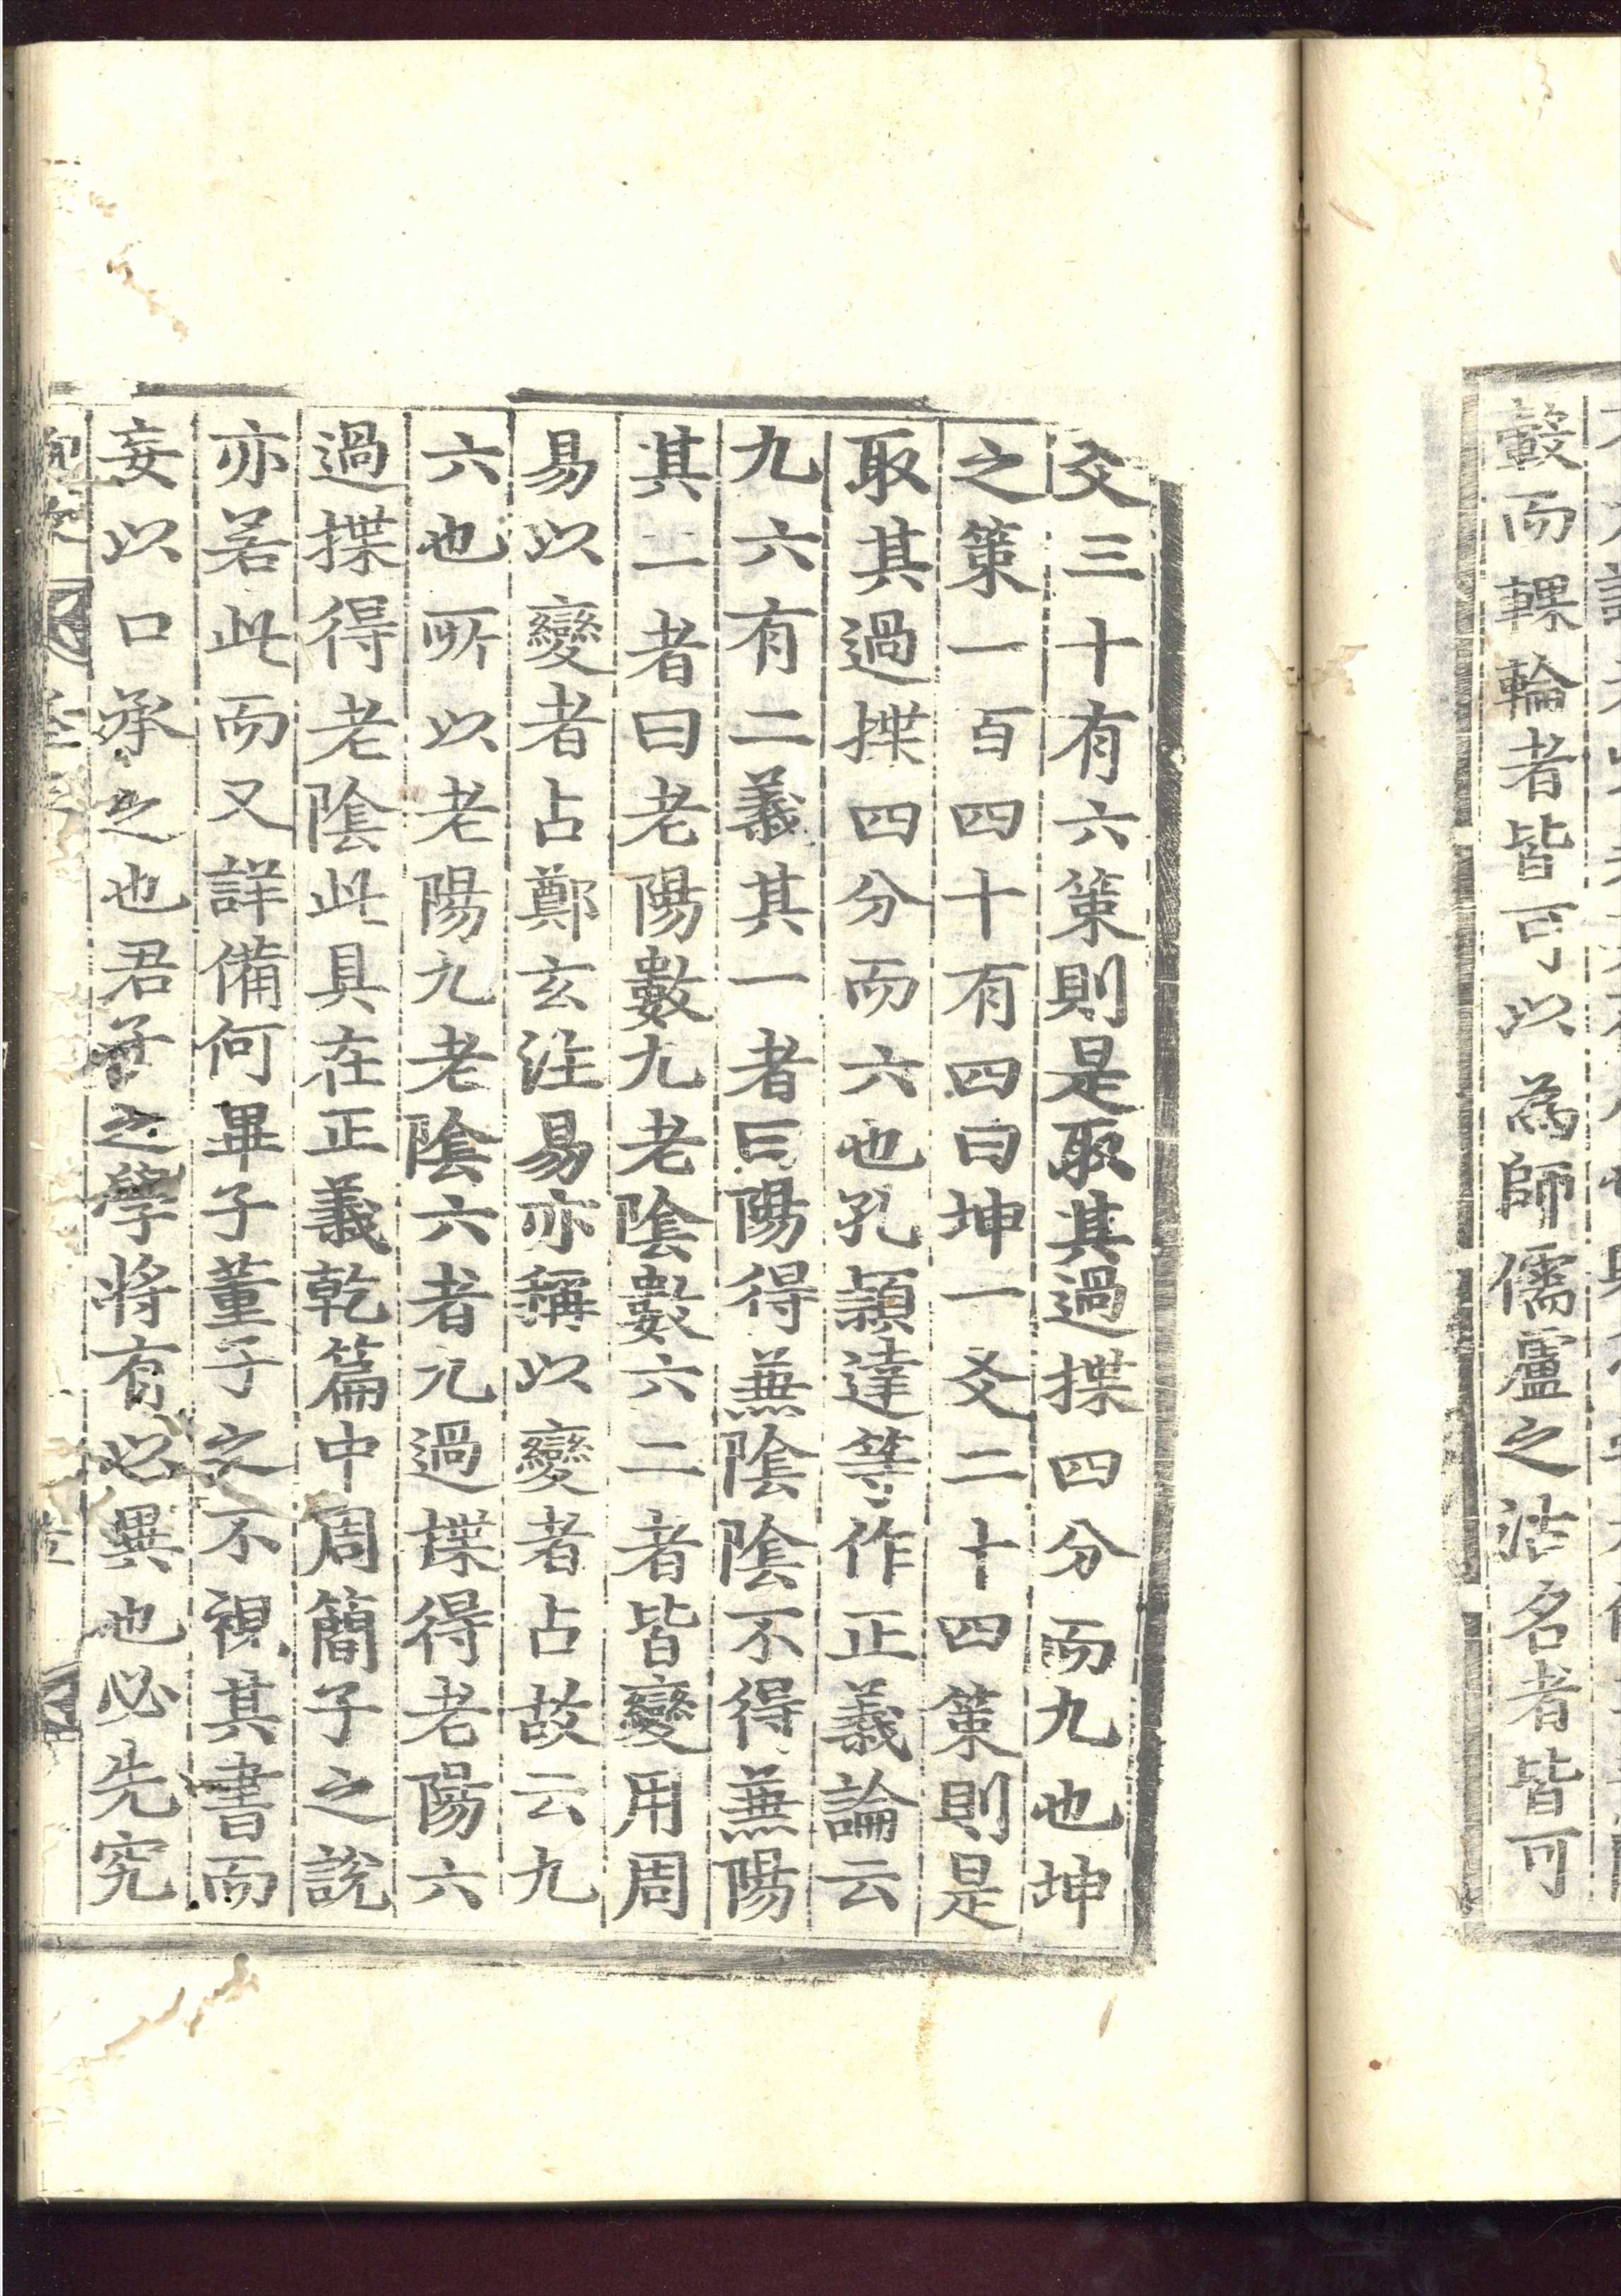 轂而輠輪者皆可以為師儒盧之沽名者皆可
爻三十有六策則是取其過揲四分而九也坤
之策一百四十有四曰坤一爻二十四策則是
取其過揲四分而六也孔穎達等作正義論云
九六有二義其一者曰陽得兼陰陰不得兼陽
其二者曰老陽數九老陰數六二者皆變用周
易以變者占鄭玄注易亦稱以變者占故云九
六也所以老陽九老陰六者九過揲得老陽六
過揲得老陰此具在正義乾篇中周簡子之說
亦若此而又詳備何畢子董子之不視其書而
妄以口承之也君子之學將有以異也必先究